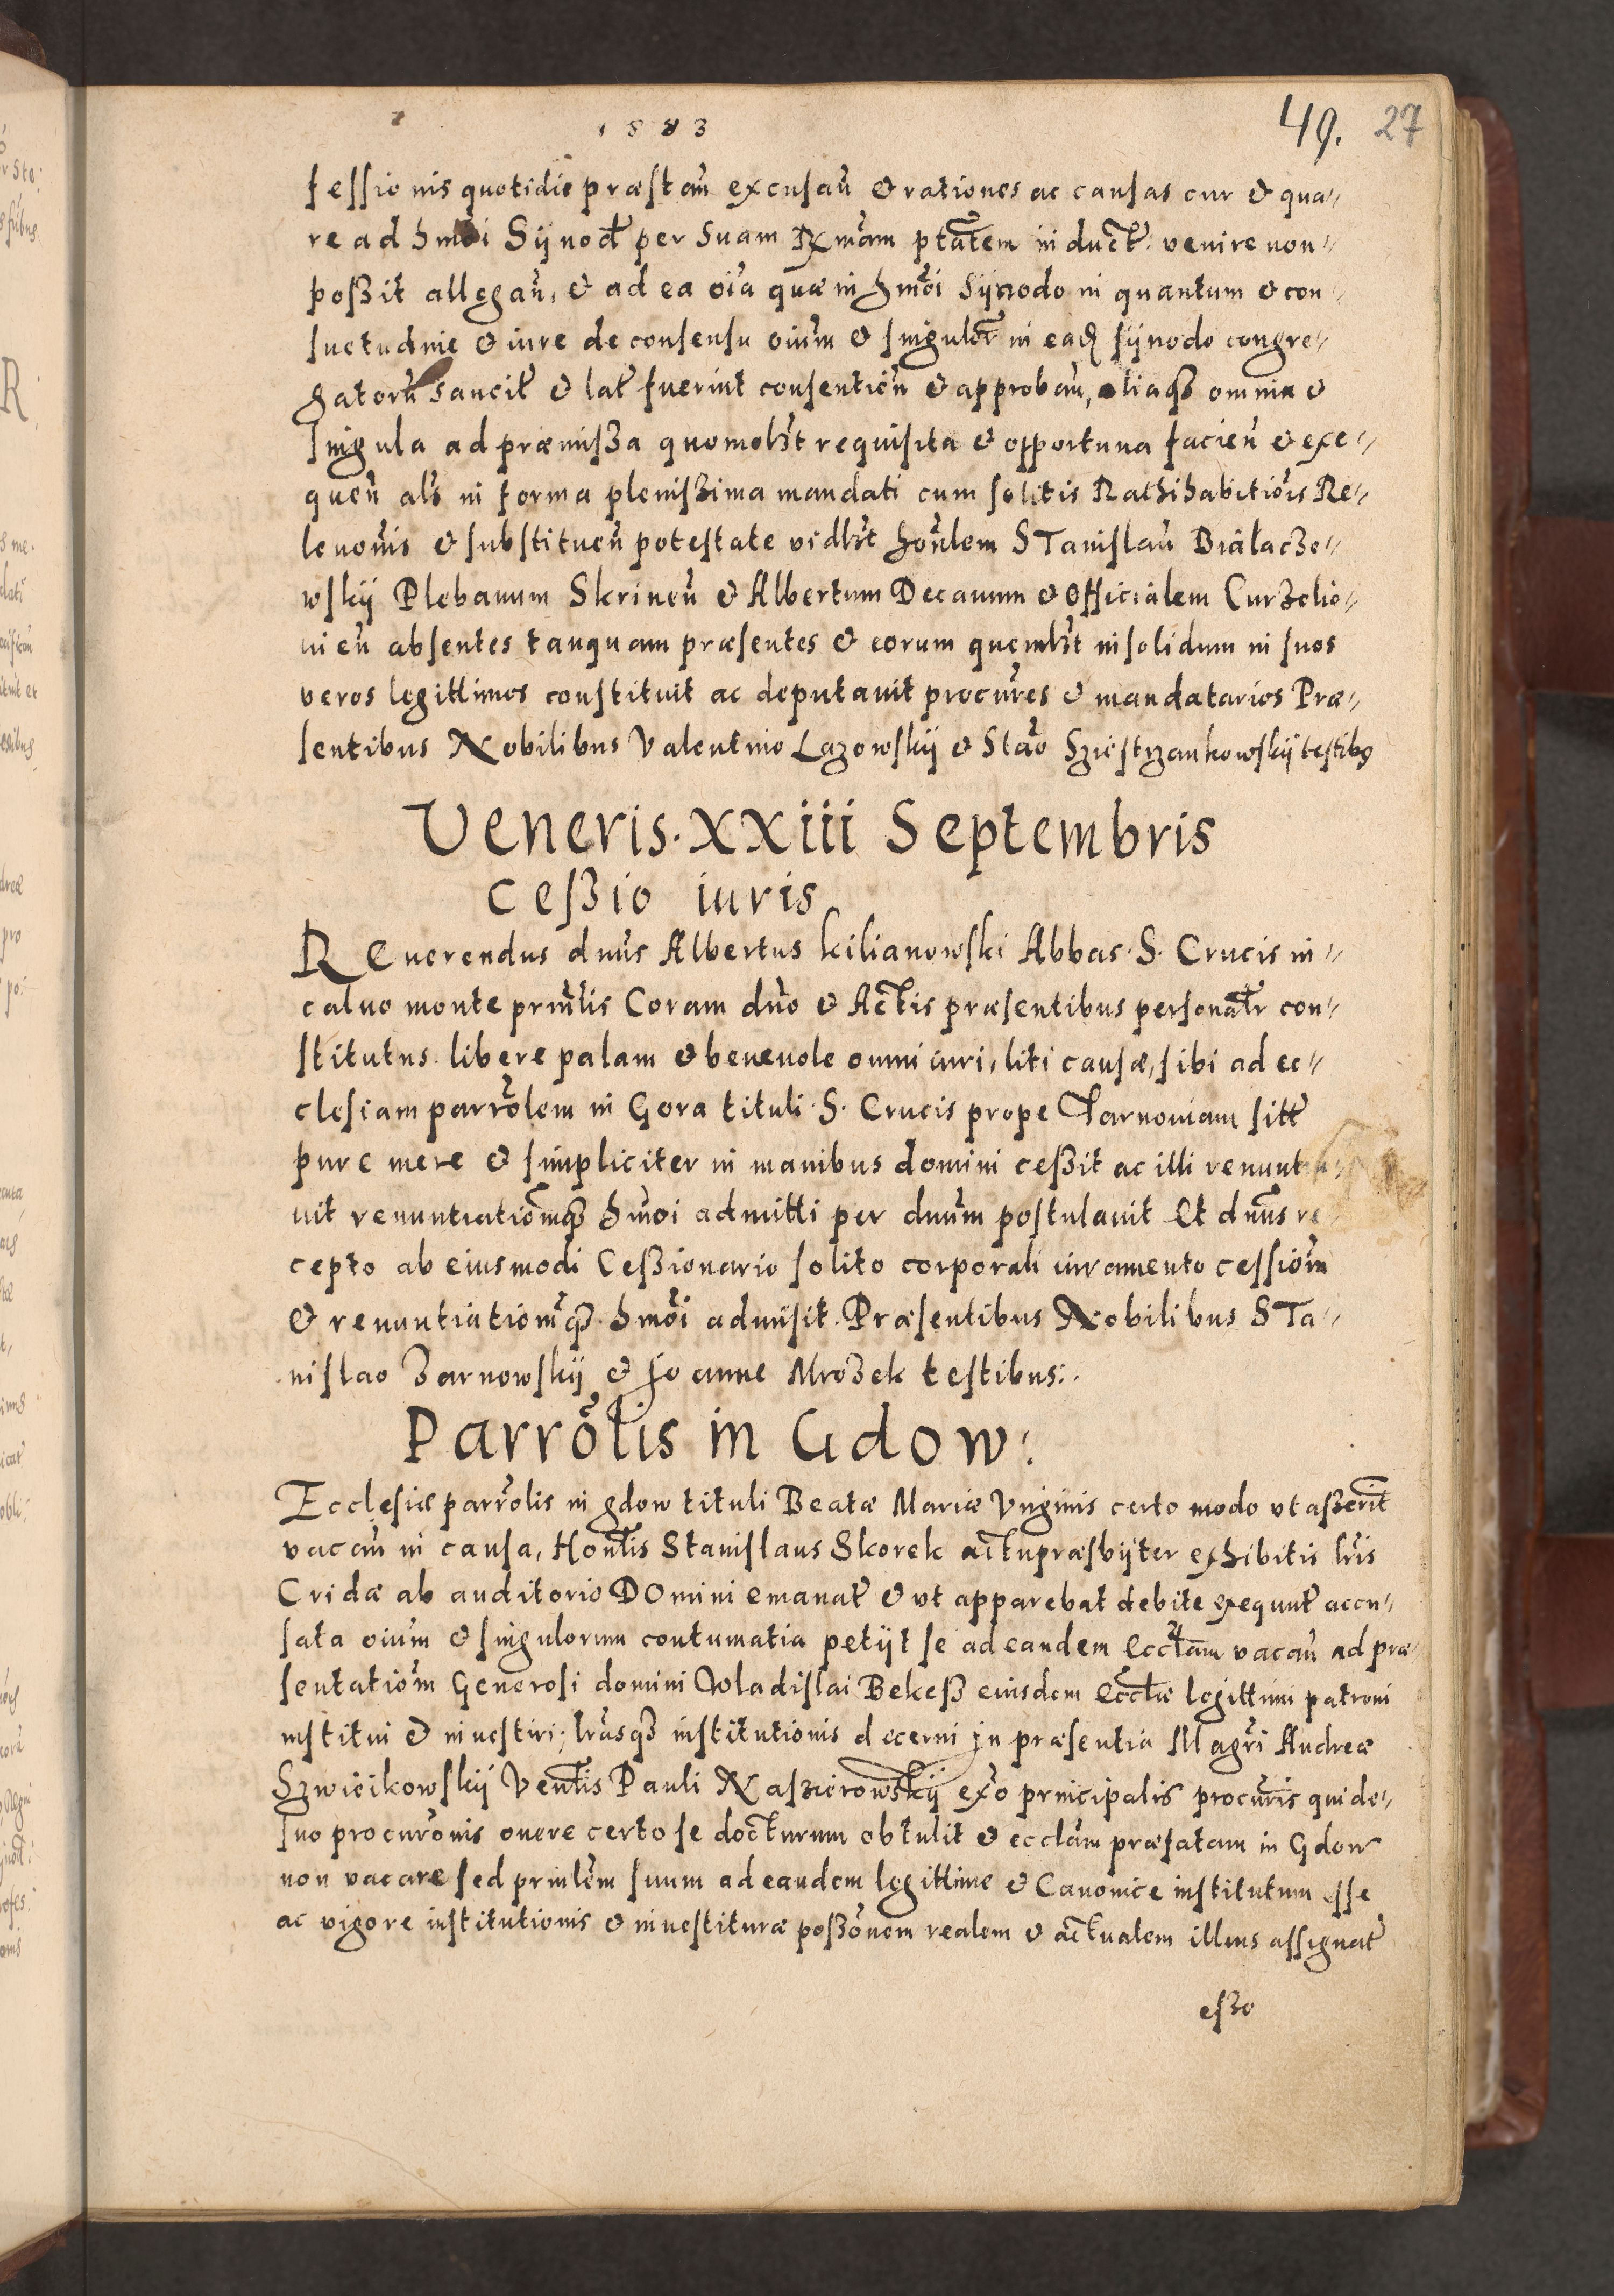 1883
49. 27
fessionis quotidie præstan̄ excusan̄ & rationes ac causas cur & qua=
re ad hmōi Sÿnod̄ per Suam Rx̄mam ptātem induct̄: venire non=
poßit allegan̄, & ad ea oīa quæ in hmōi Sÿnodo in quantum & con=
suetudine & iure de consensu oium̄ & singulor̄ in ead̄ sÿnodo congre=
gatorū sancit̄ & lat̄ fuerint consentien̄ & approban̄, aliaq3 omnia &
singula ad præmißa quomolbt̄ requisita & opportuna facien̄ & exe=
quen̄ als̄ in forma plenißima mandati cum solitis Rathihabitiōis Re=
levōnis & substituen̄ potestate vidlt̄ honl̄em STanislaū Bialacze=
wskÿ Plebanum Skrinen̄ & Albertum Decanum & Officialem Curzelio=
nien̄ absentes tanquam præsentes & eorum quemlbt̄ insolidum in suos
veros legittimos constituit ac deputauit procur̄es & mandatarios Præ=
sentibus Nobilibus Valentino Lazowskÿ & Stāo Sziestrzankowskÿ testibq
Veneris. XXiii Septembris
Ceßio iuris
REuerendus dnūs Albertus kilianowski Abbas. S. Crucis in=
caluo monte prīnlis Coram dno̅ & Actis præsentibus personalr̄ con=
stitutus. libere palam & beneuole omni iuri, liti causæ, sibi ad ec=
clesiam parrōlem in Gora tituli. S. Crucis prope Tarnouiam sitt̄
pure mere & simpliciter in manibus domini ceßit ac illi renuntia=
uit renuntiatiōmq3 hmōi admitti per dnūm postulauit Et dnūs re=
cepto ab eiusmodi Ceßionario solito corporali iuramento cessiōm
& renuntiatiōmq3. hmōi admisit. Præsentibus Nobilibus STa=
nislao Zarnowskÿ & Joanne Mrozek testibus:.
Parrōlis in Gdow:
Ecclesiæ parrōlis in gdow tituli Beatæ Mariæ Virginis certo modo vt aßerit̄
vacan̄ in causa, Honl̄is Stanislaus Skorek actupræsbÿter exhibitis lr̄is
Cridæ ab auditorio DOmini emanat̄ & vt apparebat debite exequut̄ accu=
sata oium̄ & singulorum contumatia petÿt se ad eandem eccl̄am vacan̄ ad præ=
sentatiōm Generosi domini Wladislai Bekeß eiusdem eccl̄æ legittimi patroni
institui & inuestiri; lrāsq3 institutionis decerni in præsentia Magrī Andreæ
Szwicikowskÿ Venl̄is Pauli Naszierowskÿ exō principalis procur̄is qui de=
suo procurōnis onere certo se docturum obtulit & eccl̄am præfatam in Gdow
non vacare sed prinl̄em suum ad eandem legittime & Canonice institutum esse
ac vigore institutionis & inuestituræ poßōnem realem & actualem illius assignat̄
eßo